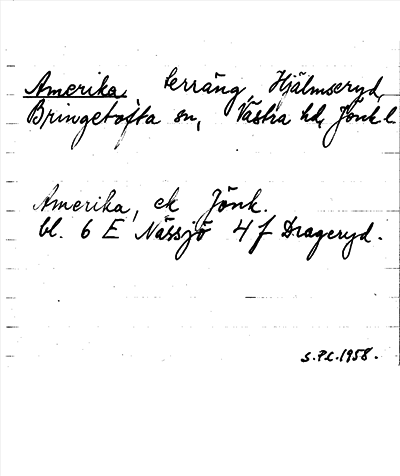 Amerika, terräng, Hjälmseryd,
Bringetofta sn, Västra hd, Jönk.l
Amerika, ek Jönk.
bl. 6 E Nässjö 4 f Drageryd.
S.P.L. 1958.